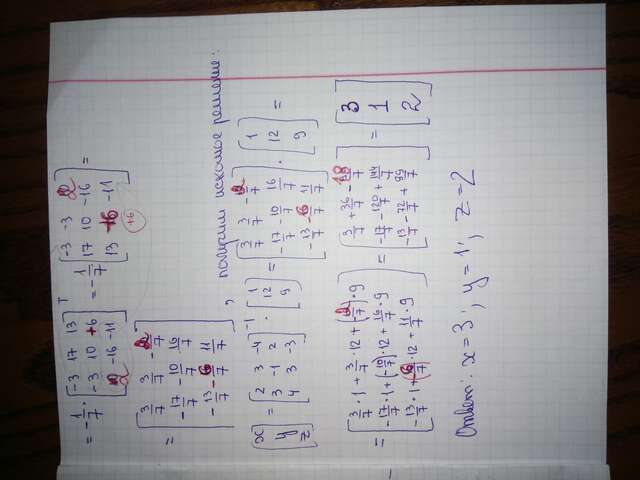 = -1/7 · [-3 17 13; -3 10 +6; 2 -16 -11]ᵀ = -1/7 [-3 -3 2; 17 10 -16; 13 +6 -11] =
+6
= [3/7 3/7 -2/7; -17/7 -10/7 16/7; -13/7 -6/7 11/7], получим искомое решение:
[x; y; z] = [2 3 -4; 3 -1 2; 4 3 -3]⁻¹ · [1; 12; 9] = [3/7 3/7 -2/7; -17/7 -10/7 16/7; -13/7 -6/7 11/7] · [1; 12; 9] =
= [3/7·1 + 3/7·12 + (-2/7)·9; -17/7·1 + (-10/7)·12 + 16/7·9; -13/7·1 + (-6/7)·12 + 11/7·9] = [3/7 + 36/7 - 18/7; -17/7 - 120/7 + 144/7; -13/7 - 72/7 + 99/7] = [3; 1; 2]
Ответ: x=3; y=1; z=2